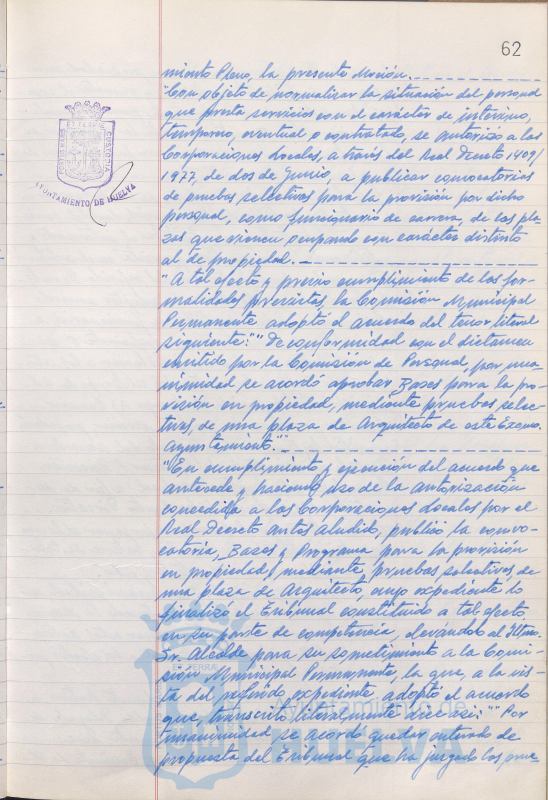 62
miento Pleno, la presente Moción.
"Con objeto de normalizar la situación del personal
que presta servicios con el carácter de interino,
temporero, eventual o contratado, se autorizó a las
Corporaciones Locales, a través del Real Decreto 1409/
1977, de dos de Junio, a publicar convocatorias
de pruebas selectivas para la provisión por dicho
personal, como funcionario de carrera, de las pla-
zas que vienen ocupando con carácter distinto
al de propiedad.
"A tal efecto y previo cumplimiento de las for-
malidades previstas, la Comisión Municipal
Permanente adoptó el acuerdo del tenor literal
siguiente: "" De conformidad con el dictamen
emitido por la Comisión de Personal, por una-
nimidad se acordó aprobar Bases para la pro-
visión en propiedad, mediante pruebas selec-
tivas, de una plaza de Arquitecto de este Excmo.
Ayuntamiento.""
"En cumplimiento y ejecución del acuerdo que
antecede y haciendo uso de la autorización
concedida a las Corporaciones Locales por el
Real Decreto antes aludido, publicó la convo-
catoria, Bases y Programa para la provisión
en propiedad, mediante pruebas selectivas, de
una plaza de Arquitecto, cuyo expediente lo
finalizó el Tribunal constituido a tal efecto
en su parte de competencia, elevándolo al Iltmo.
Sr. Alcalde para su sometimiento a la Comi-
sión Municipal Permanente, la que, a la vis-
ta del referido expediente adoptó el acuerdo
que, transcrito literalmente dice así: "" Por
unanimidad se acordó quedar enterado de
propuesta del Tribunal que ha juzgado las prue-
AYUNTAMIENTO DE HUELVA
Ayuntamiento de
HUELVA